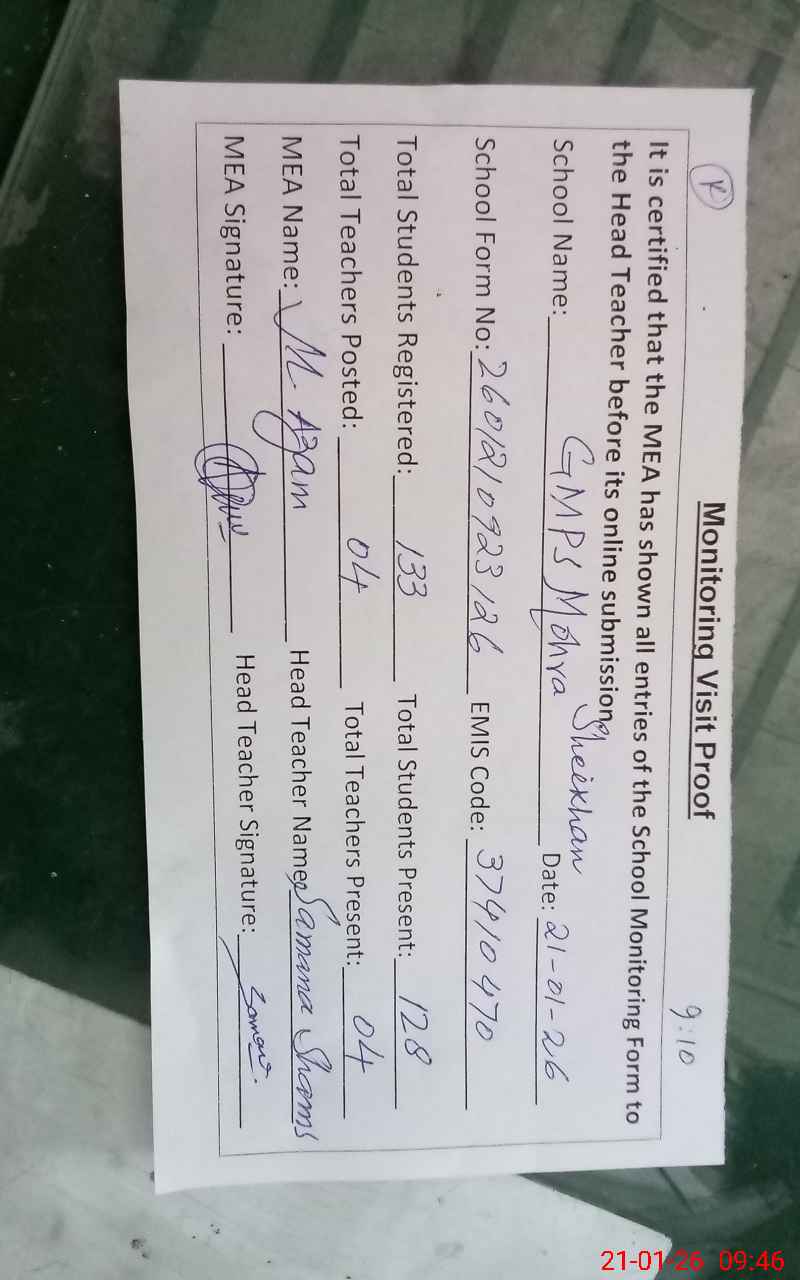 9:10
K
Monitoring Visit Proof
It is certified that the MEA has shown all entries of the School Monitoring Form to
the Head Teacher before its online submission.
School Name: GMPS Mohra Sheikhan Date: 21-01-26
School Form No: 2601210923126 EMIS Code: 37410470
Total Students Registered: 133 Total Students Present: 128
Total Teachers Posted: 04 Total Teachers Present: 04
MEA Name: M Azam Head Teacher Name: Samana Shams
MEA Signature: Head Teacher Signature:
21-01-26 09:46